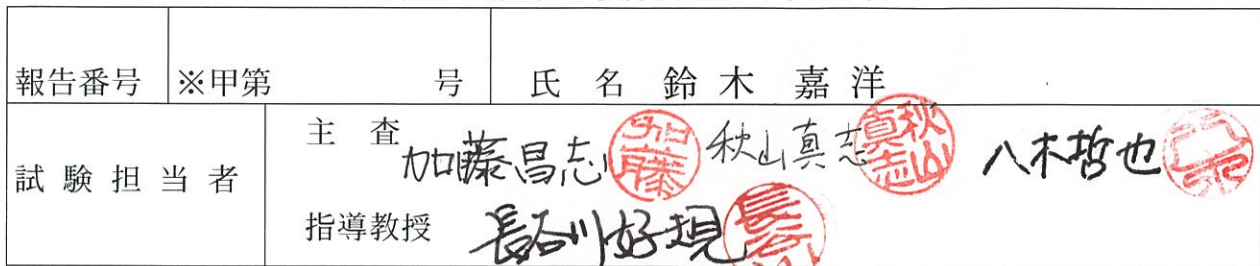 報告番号 ※甲第 号 氏 名 鈴 木 嘉 洋
試 験 担 当 者
主 査 加藤昌志 加藤 秋山真志 秋山真志 八木哲也
指導教授 長谷川好規